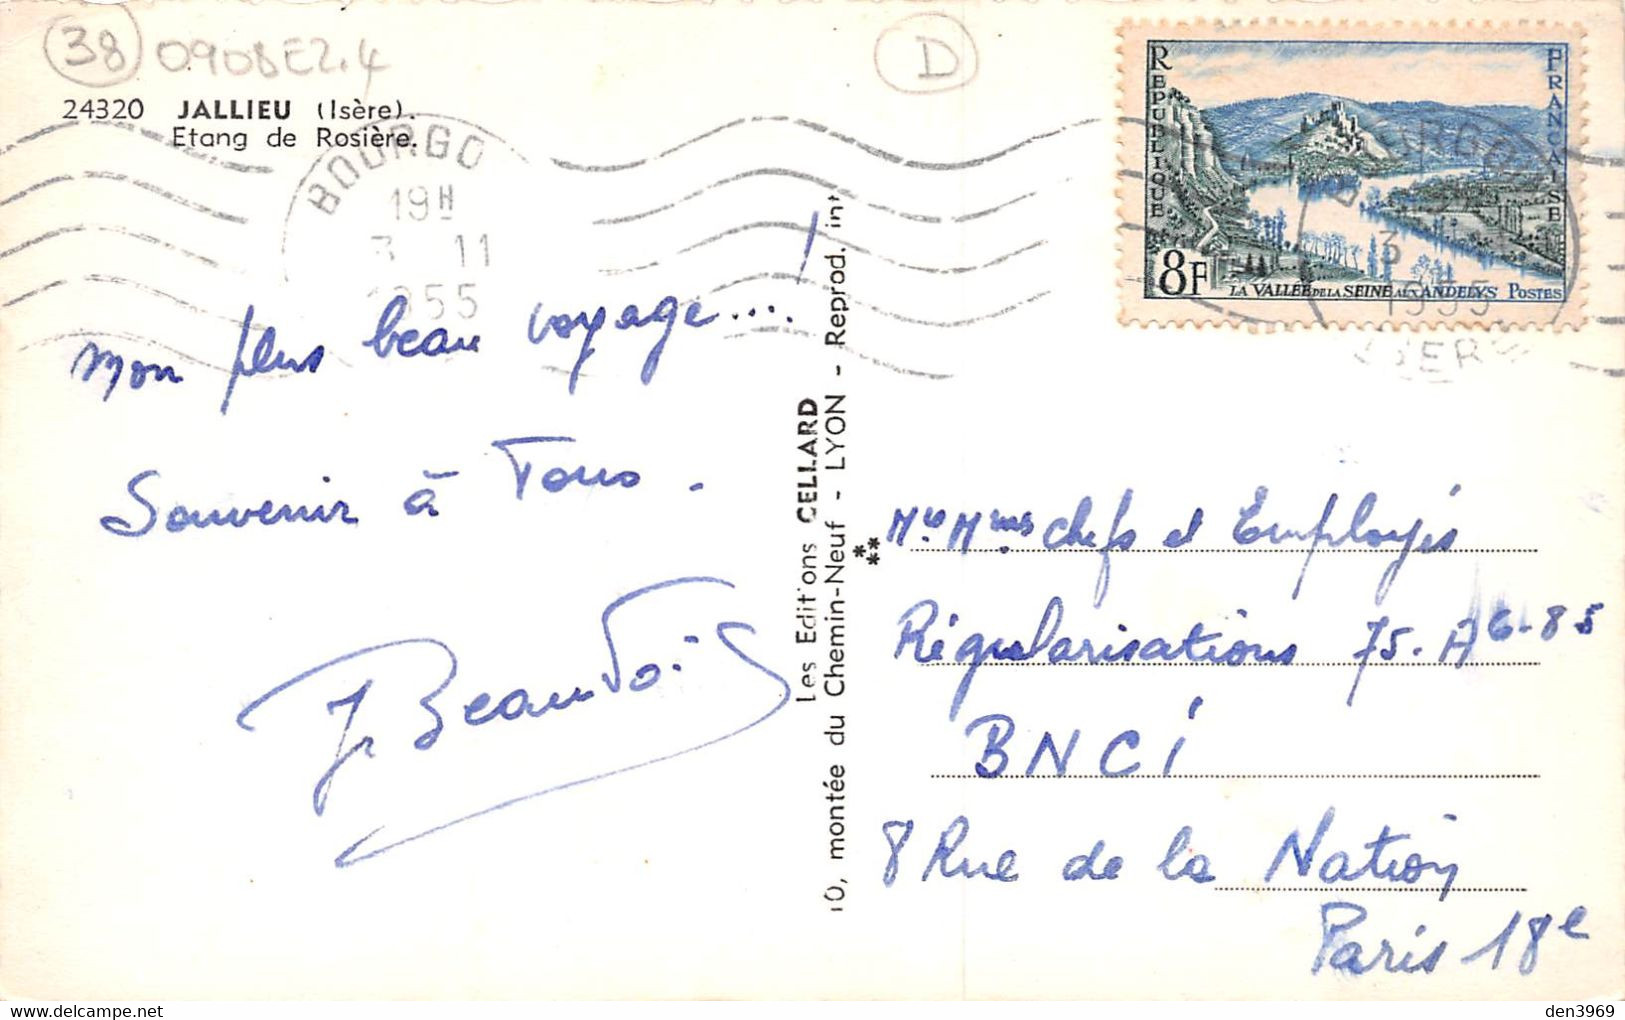 38 0908E2.4
D
24320 JALLIEU (Isère).
Etang de Rosière.
BOURGO
19H
3 11
1955
REPUBLIQUE FRANCAISE
8F LA VALLÉE DE LA SEINE AUX ANDELYS POSTES
3
1955
mon plus beau voyage....!
Souvenir à Tous.
Beauvois
Les Editions CELLARD
10, montée du Chemin-Neuf - LYON - Reprod. int
Mrs Mmes Chefs et Employés
Régularisations 75.A 6-85
BNCI
8 Rue de la Nation
Paris 18e
den3969